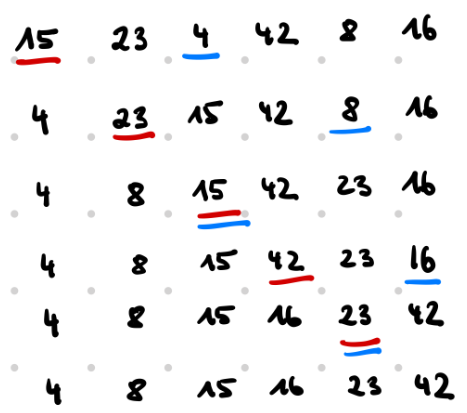 15 23 4 42 8 16
4 23 15 42 8 16
4 8 15 42 23 16
4 8 15 42 23 16
4 8 15 16 23 42
4 8 15 16 23 42